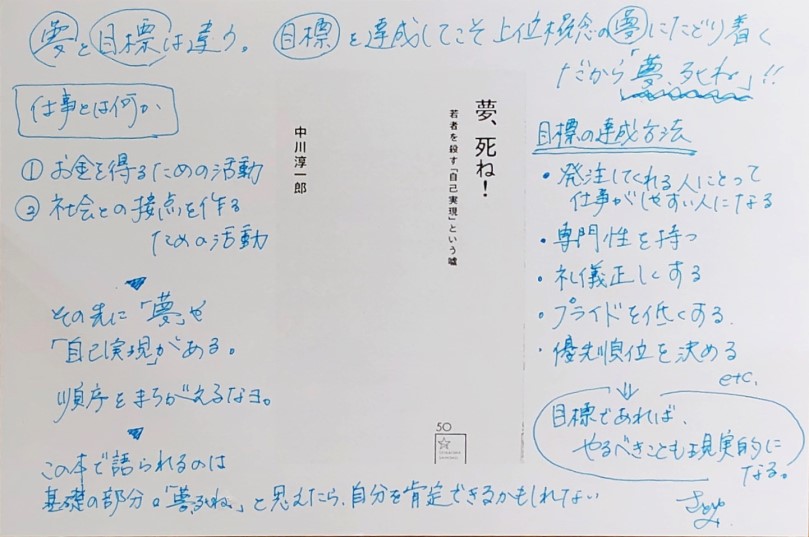 夢と目標は違う。 目標を達成してこそ上位概念の夢にたどり着く
だから「夢、死ね」!!
仕事とは何か
① お金を得るための活動
② 社会との接点を作る
ための活動
その先に「夢」や
「自己実現」がある。
順序をまちがえるなヨ。
この本で語られるのは
基礎の部分。「夢、死ね」と思えたら、自分を肯定できるかもしれない
夢、死ね!
若者を殺す「自己実現」という嘘
中川淳一郎
50
目標の達成方法
・発注してくれる人にとって
仕事がしやすい人になる
・専門性を持つ
・礼儀正しくする
・プライドを低くする.
・優先順位を決める
etc.
目標であれば、
やるべきことも現実的に
なる。